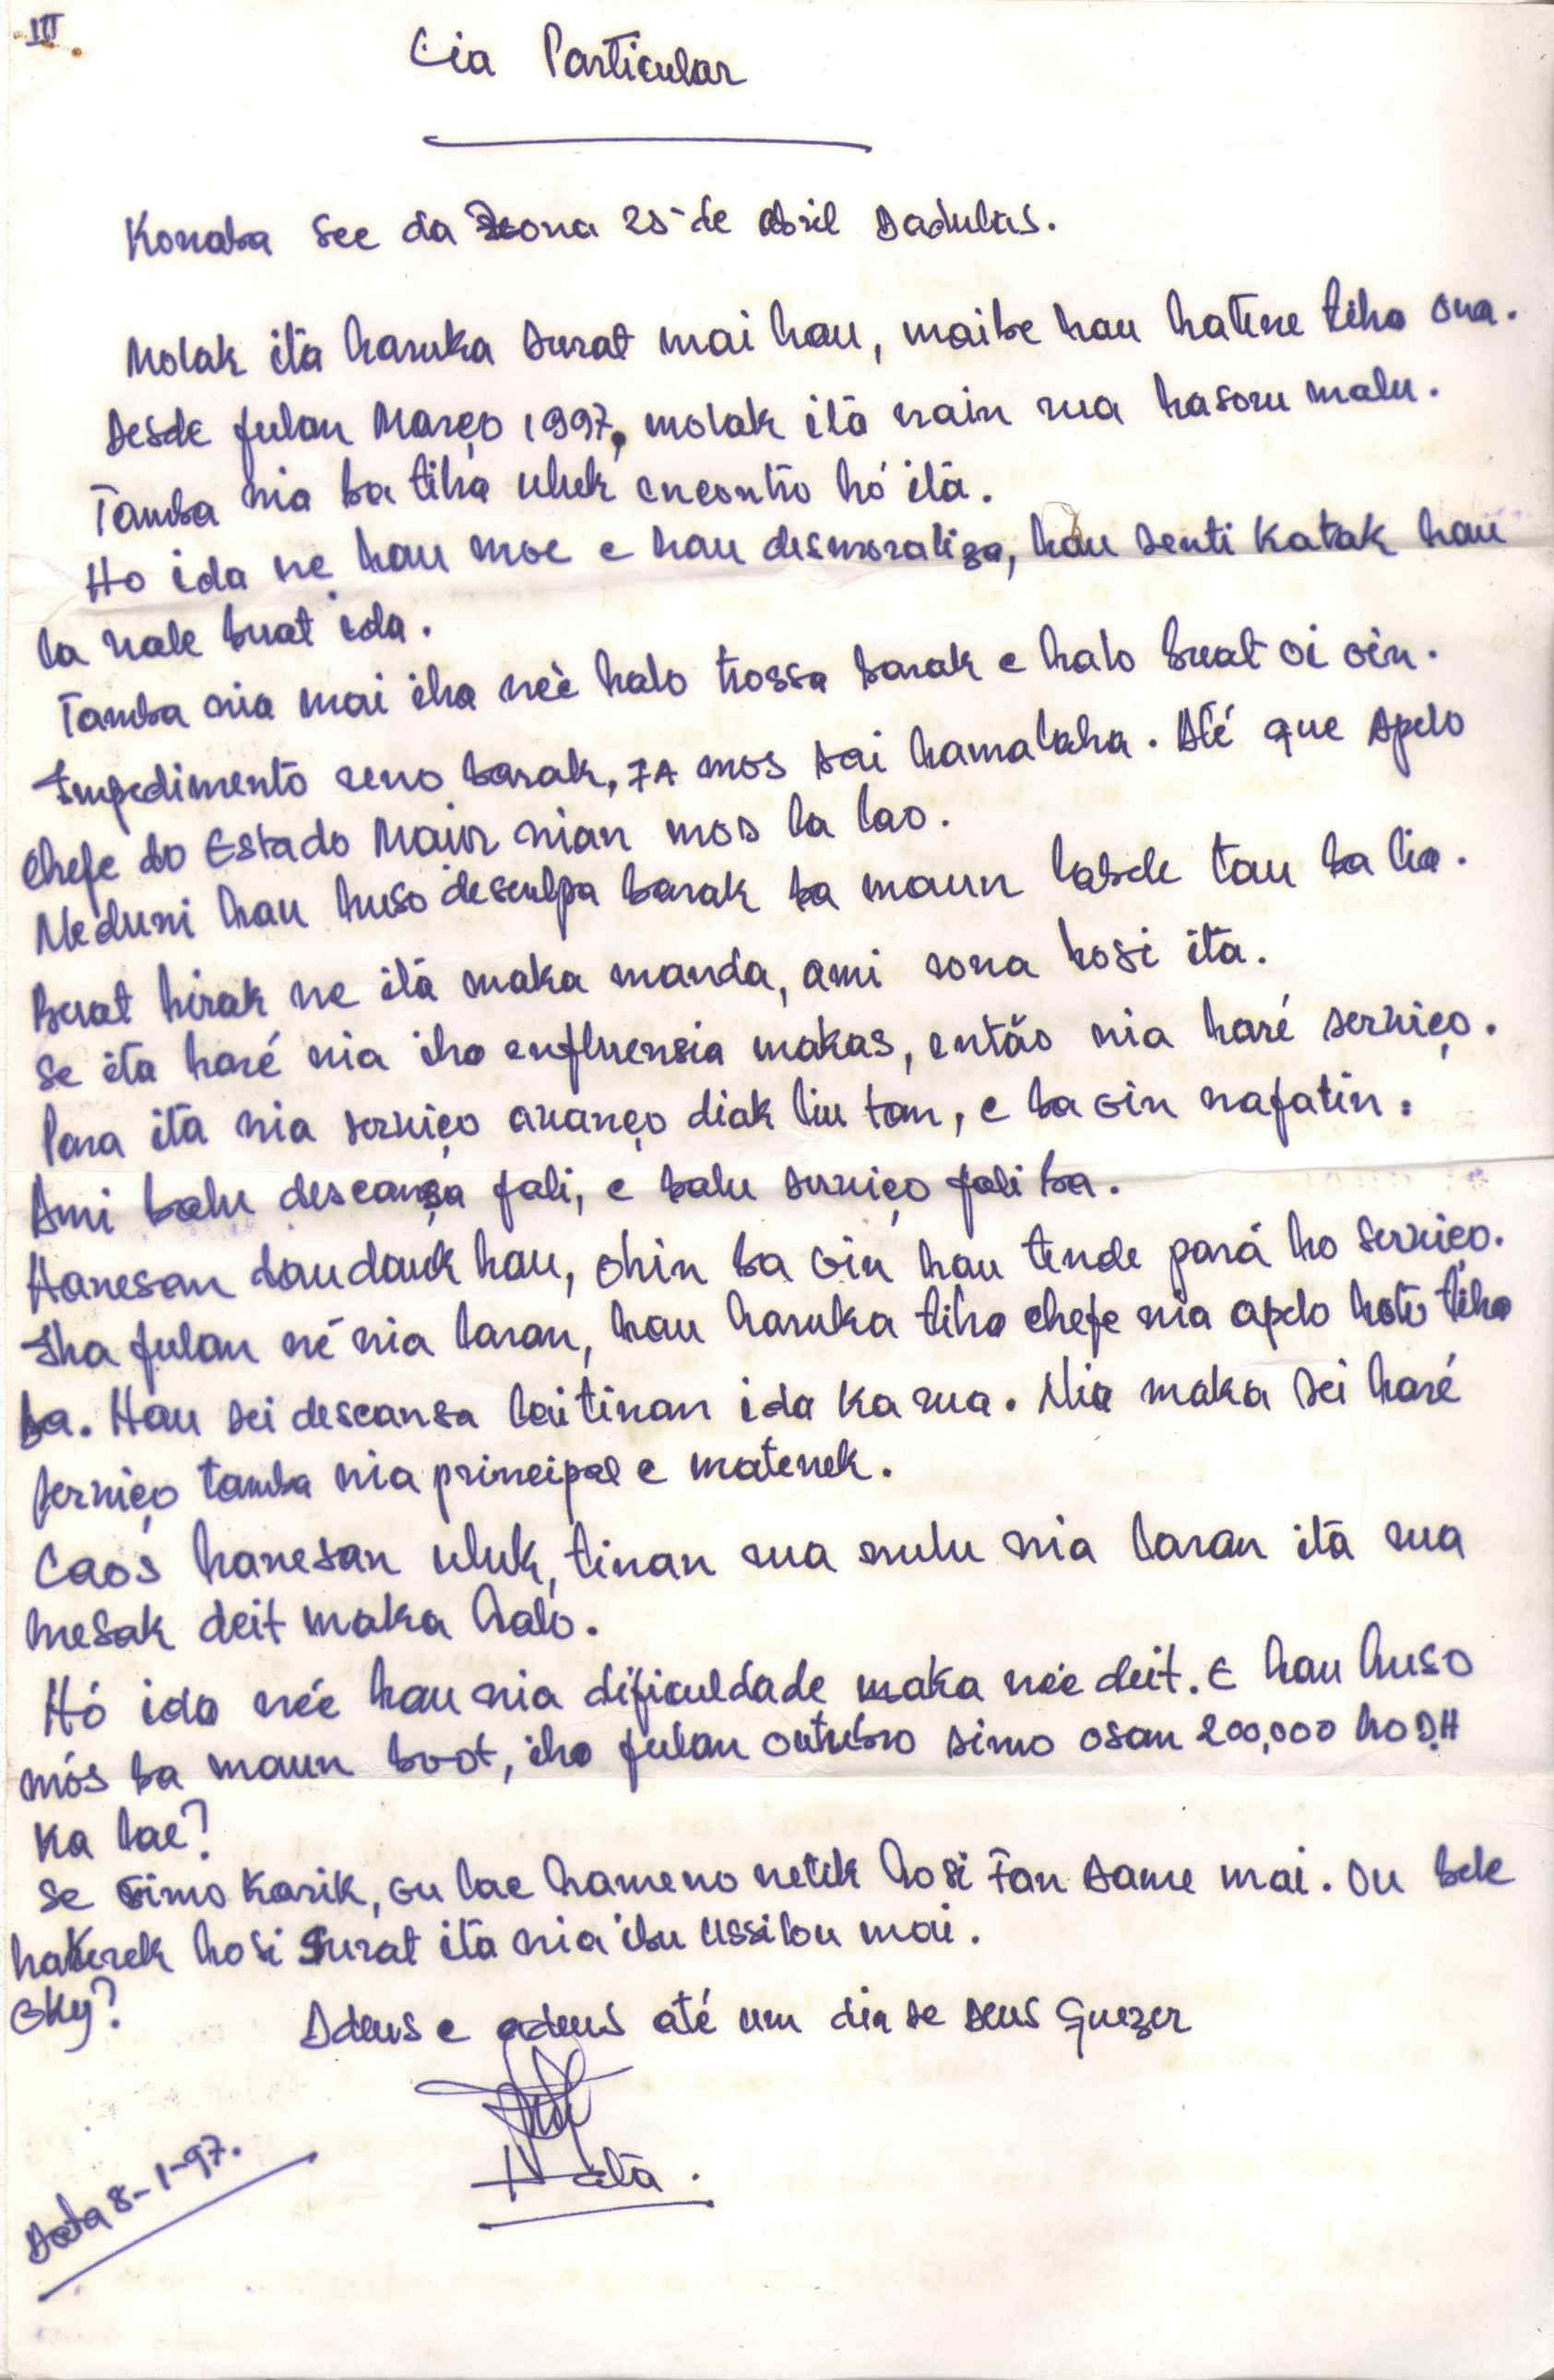 III
Lia Particular
Konaba See da Zona 25 de Abril Dadulas.
Molak ita haruka surat mai hau, maibe hau hatene tiha ona.
Desde fulan Março 1997, molak itá nain rua hasoru malu.
Tamba nia ba tiha uluk encontro hó itá.
Ho ida ne hau moe e hau desmoraliza, hau senti katak hau
la vale buat ida.
Tamba nia mai iha neè halo trossa barak e halo buat oi oin.
Impedimento seno barak, ZA mos sai hamalaha. Até que Apelo
Chefe do Estado Maior nian mos la lao.
Neduni hau huso desculpa barak ba maun labele tau ba lia.
Buat hirak ne itá maka manda, ami rona hosi ita.
Se ita haré nia iha enfluensia makas, então nia haré serviço.
Para itá nia serviço avanço diak liu tan, e ba oin nafatin.
Ami balu descansa fali, e balu serviço fali ba.
Hanesan daudauk hau, ohin ba oin hau tende pará ho serviço.
Iha fulan né nia laran, hau haruka tiha chefe nia apelo hotu tiha
ba. Hau sei descansa lai tinan ida ka rua. Nia maka sei haré
serviço tamba nia principal e matenek.
Caos hanesan uluk, tinan rua nulu nia laran itá rua
mesak deit maka halo.
Hó ida née hau nia dificuldade maka née deit. E hau huso
mós ba maun boot, iha fulan outubro simo osan 200,000 ho D.H
Ka lae?
Se simo karik, ou lae hameno netik hosi Fan Same mai. Ou bele
hakerek hosi surat itá nia ibu Ussilou mai.
Oky?
Adeus e adeus até um dia se Deus Quezer
Data 8-1-97.